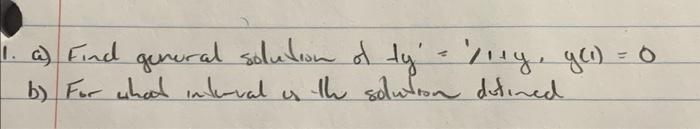 1. a) Find general solution of ty' = 1/1+y, y(1) = 0
b) For what interval is the solution defined